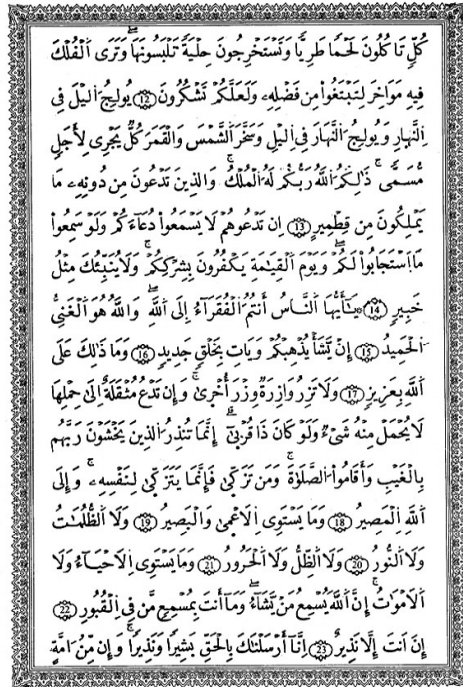 كُلٍّ تَاكُلُونَ لَحْمًا طَرِيًّا وَتَسْتَخْرِجُونَ حِلْيَةً تَلْبَسُونَهَا وَتَرَى اَ۬لْفُلْكَ
فِيهِ مَوَاخِرَ لِتَبْتَغُواْ مِن فَضْلِهِۦ وَلَعَلَّكُمْ تَشْكُرُونَ ١٢ يُولِجُ اُ۬ليْلَ فِے
اِ۬لنَّهارِ وَيُولِجُ اُ۬لنَّهَارَ فِے اِ۬ليْلِ وَسَخَّرَ اَ۬لشَّمْسَ وَالْقَمَرَ كُلٌّ يَجْرِے لِأَجَلٍ
مُّسَمًّى ذَٰلِكُمُ اُ۬للَّهُ رَبُّكُمْ لَهُ اُ۬لْمُلْكُ وَالذِينَ تَدْعُونَ مِن دُونِهِۦ مَا
يَمْلِكُونَ مِن قِطْمِيرٍ ١٣ اِن تَدْعُوهُمْ لَا يَسْمَعُواْ دُعَآءَكُمْ وَلَوْ سَمِعُواْ
مَا اَ۪سْتَجَابُواْ لَكُمْ وَيَوْمَ اَ۬لْقِيَٰمَةِ يَكْفُرُونَ بِشِرْكِكُمْ وَلَا يُنَبِّئُكَ مِثْلُ
خَبِيرٍ ١٤ يَٰٓأَيُّهَا اَ۬لنَّاسُ أَنتُمُ اُ۬لْفُقَرَآءُ اِلَى اَ۬للَّهِ وَاللَّهُ هُوَ اَ۬لْغَنِىُّ
اُ۬لْحَمِيدُ ١٥ إِنْ يَّشَأْ يُذْهِبْكُمْ وَيَاتِ بِخَلْقٍ جَدِيدٍ ١٦ وَمَا ذَٰلِكَ عَلَى
اَ۬للَّهِ بِعَزِيزٍ ١٧ وَلَا تَزِرُ وَازِرَةٌ وِزْرَ أُخْرَىٰ وَإِن تَدْعُ مُثْقَلَةٌ اِلَىٰ حِمْلِهَا
لَا يُحْمَلْ مِنْهُ شَىْءٌ وَلَوْ كَانَ ذَا قُرْبَىٰٓ إِنَّمَا تُنذِرُ اُ۬لذِينَ يَخْشَوْنَ رَبَّهُم
بِالْغَيْبِ وَأَقَامُواْ اُ۬لصَّلَوٰةَ وَمَن تَزَكّىٰ فَإِنَّمَا يَتَزَكّىٰ لِنَفْسِهِۦ وَإِلَى
اَ۬للَّهِ اِ۬لْمَصِيرُ ١٨ وَمَا يَسْتَوِے اِ۬لَاعْمىٰ وَالْبَصِيرُ ١٩ وَلَا اَ۬لظُّلُمَٰتُ
وَلَا اَ۬لنُّورُ ٢٠ وَلَا اَ۬لظِّلُّ وَلَا اَ۬لْحَرُورُ ٢١ وَمَا يَسْتَوِے اِ۬لَاحْيَآءُ وَلَا
اَ۬لَامْوَٰتُ إِنَّ اَ۬للَّهَ يُسْمِعُ مَنْ يَّشَآءُ وَمَآ أَنتَ بِمُسْمِعٍ مَّن فِے اِ۬لْقُبُورِ ٢٢
إِنَ اَنتَ إِلَّا نَذِيرٌ ٢٣ اِنَّآ أَرْسَلْنَٰكَ بِالْحَقِّ بَشِيرًا وَنَذِيرًا وَإِن مِّنُ امَّةٍ